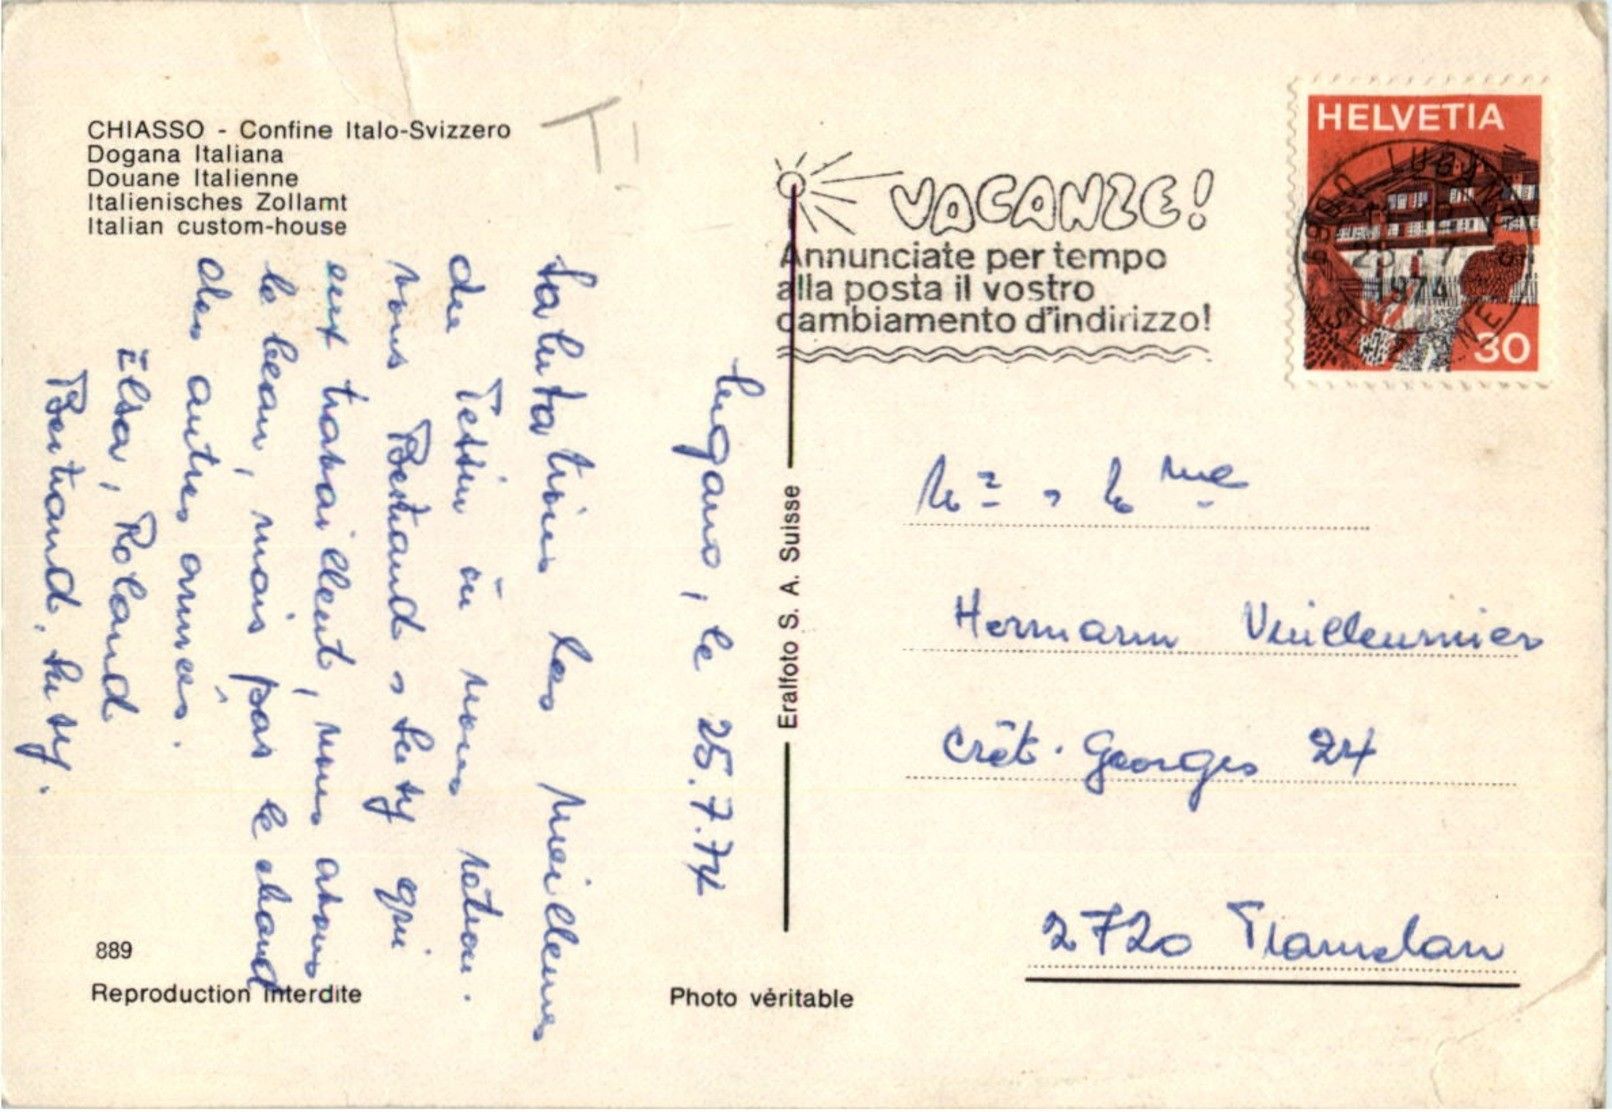 CHIASSO - Confine Italo-Svizzero
Dogana Italiana
Douane Italienne
Italienisches Zollamt
Italian custom-house
VACANZE!
Annunciate per tempo
alla posta il vostro
cambiamento d'indirizzo!
HELVETIA
30
6900 LUGANO
25.-7
1974
Lugano, le 25.7.74
Salutations les meilleures
du Tessin où nous retrou-
vons Bertrand & Susy qui
eux travaillent, nous avons
le beau, mais pas le chaud
des autres années.
Elsa, Roland
Bertrand, Susy.
Eralfoto S. A. Suisse
Mr & Mme
Hermann Vuilleumier
Crêt-Georges 24
2720 Tramelan
889
Reproduction interdite
Photo véritable